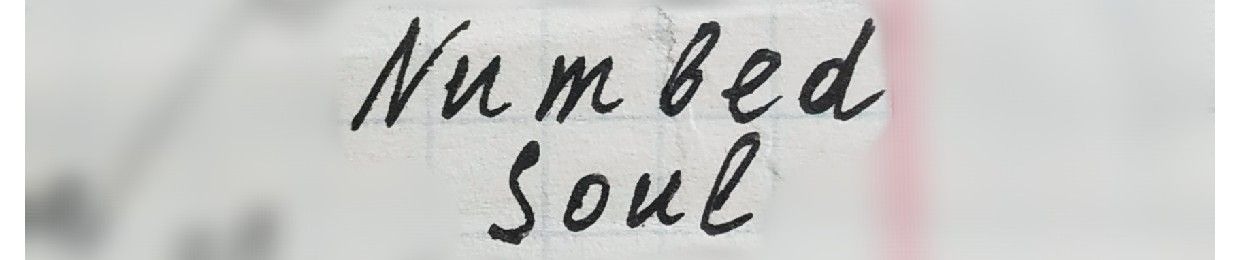 Numbed
Soul